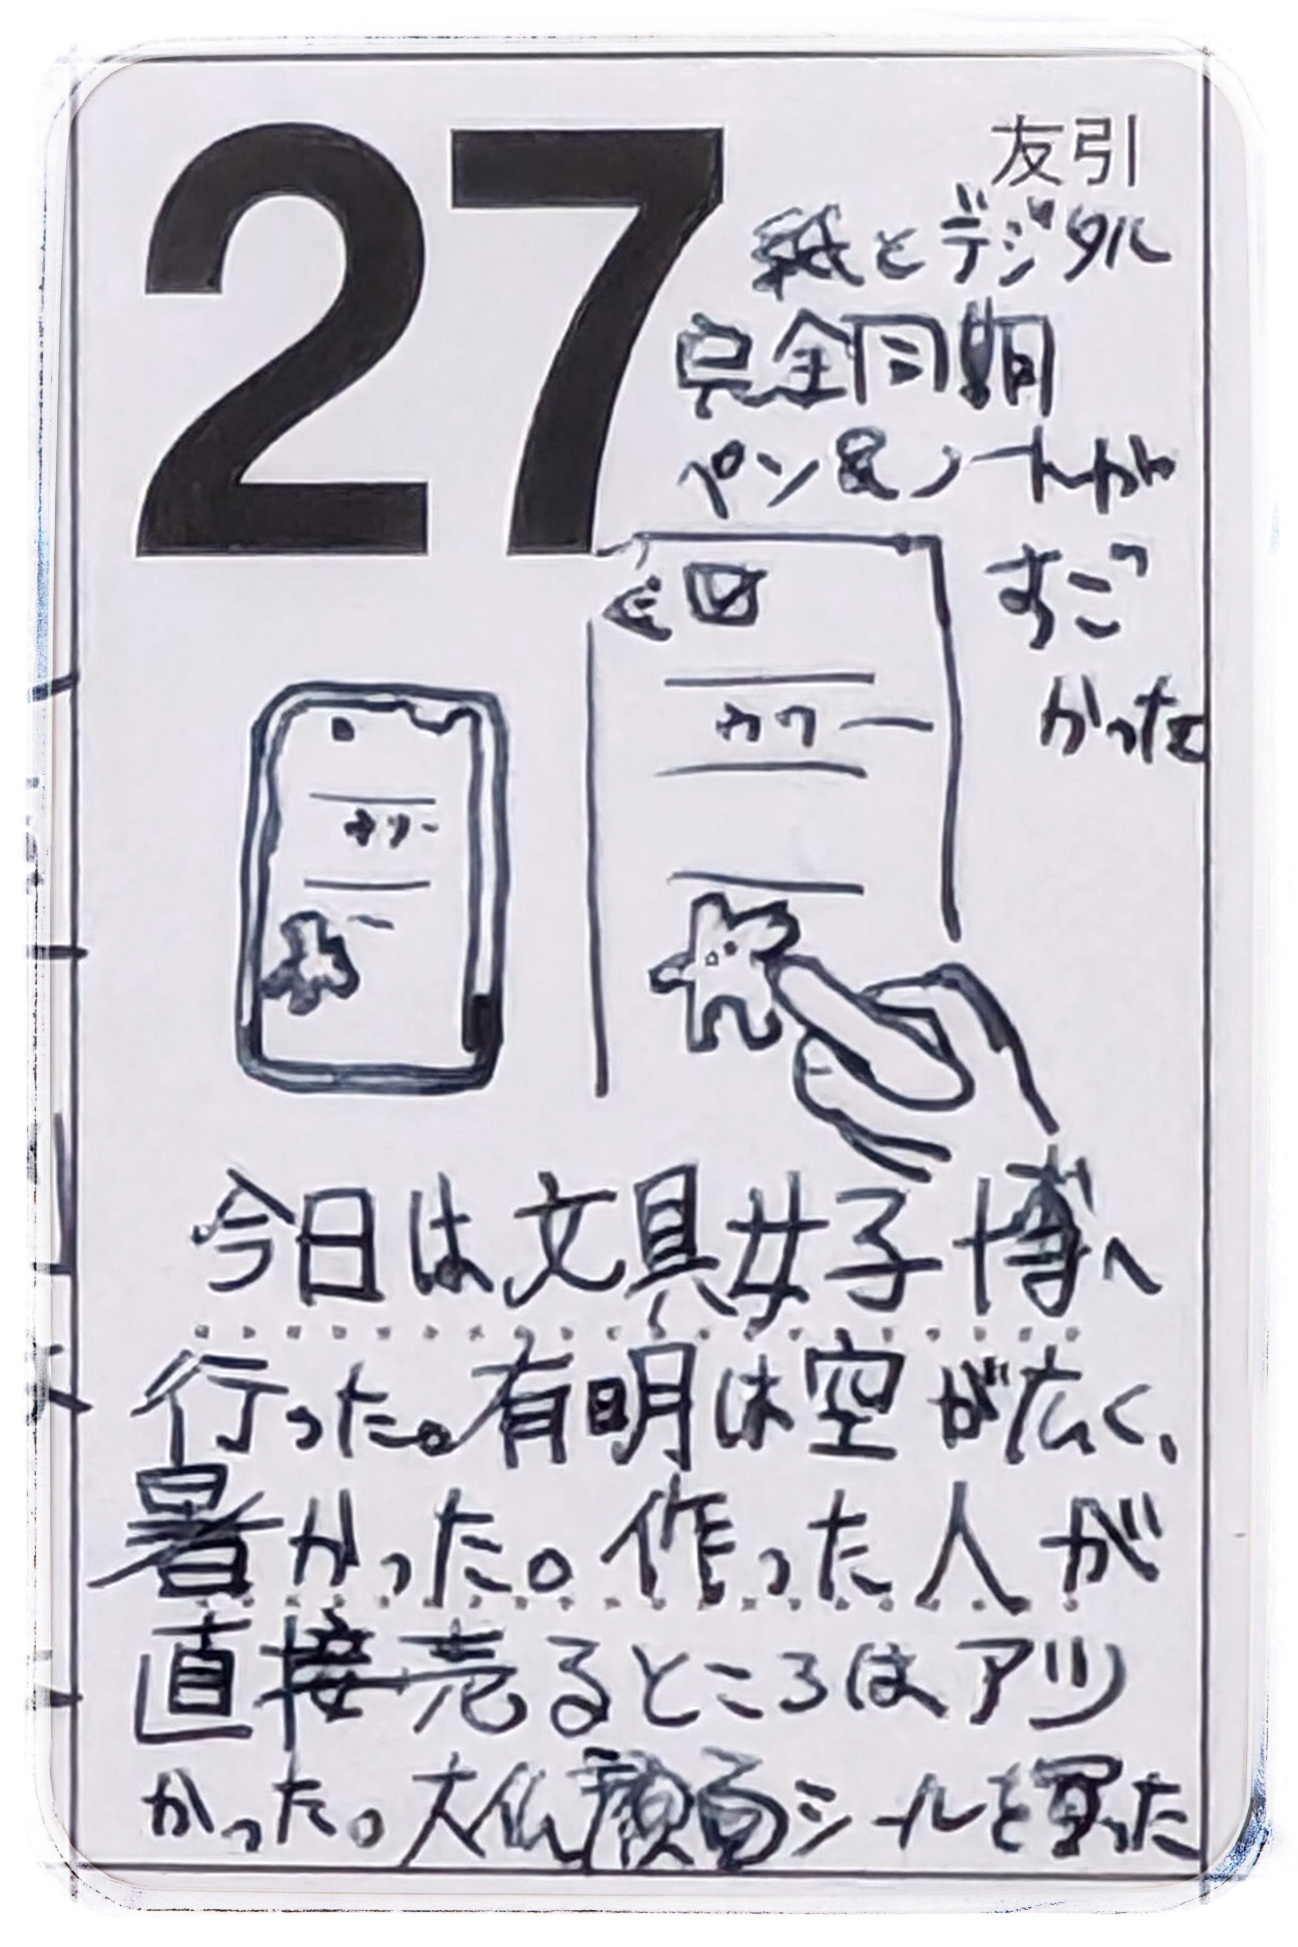 27
友引
紙とデジタル
完全同期
ペン&ノートが
すご
かった
今日は文具女子博へ
行った。有明は空が広く、
暑かった。作った人が
直接売るところはアツ
かった。大仏顔面シールを買った